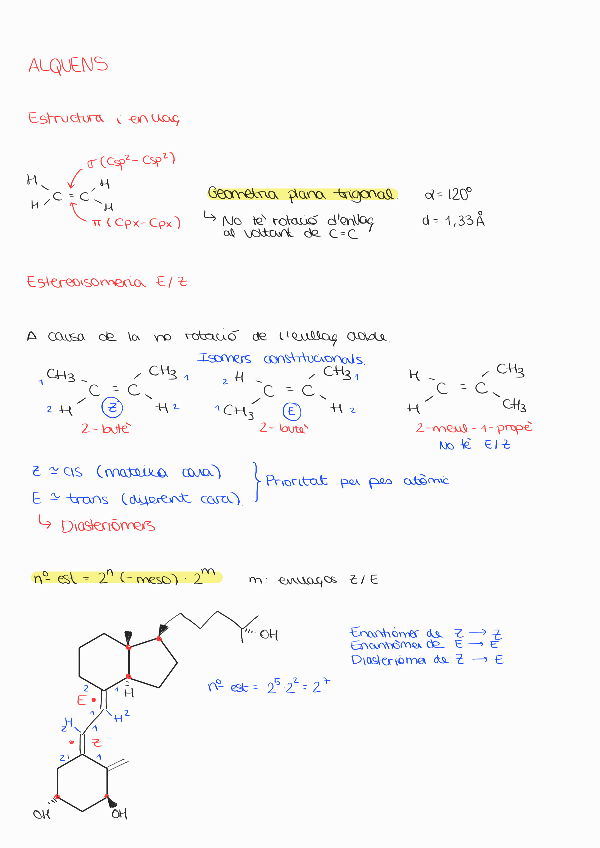 ALQUENS
Estructura i enllaç
σ (Csp² - Csp²)
H H
C = C
H H
π (Cpx - Cpx)
Geometria plana trigonal α = 120°
↳ No té rotació d'enllaç d = 1,33 Å
al voltant de C=C
Estereoisomeria E/Z
A causa de la no rotació de l'enllaç doble.
Isomers constitucionals.
1 CH3 CH3 1
C = C
2 H Z H 2
2-butè
2 H CH3 1
C = C
1 CH3 E H 2
2-butè
H CH3
C = C
H CH3
2-metil-1-propè
No té E/Z
Z ≃ cis (mateixa cara)
E ≃ trans (diferent cara)
Prioritat per pes atòmic
↳ Diasteriòmers
nº est = 2ⁿ (-meso) · 2ᵐ m: enllaços Z/E
OH
Enantiòmer de Z → Z
Enantiòmer de E → E
Diasteriòmer de Z → E
nº est = 2⁵ · 2² = 2⁷
H
2 1
E
1 H 2
2 H 1
Z
2 1
OH OH